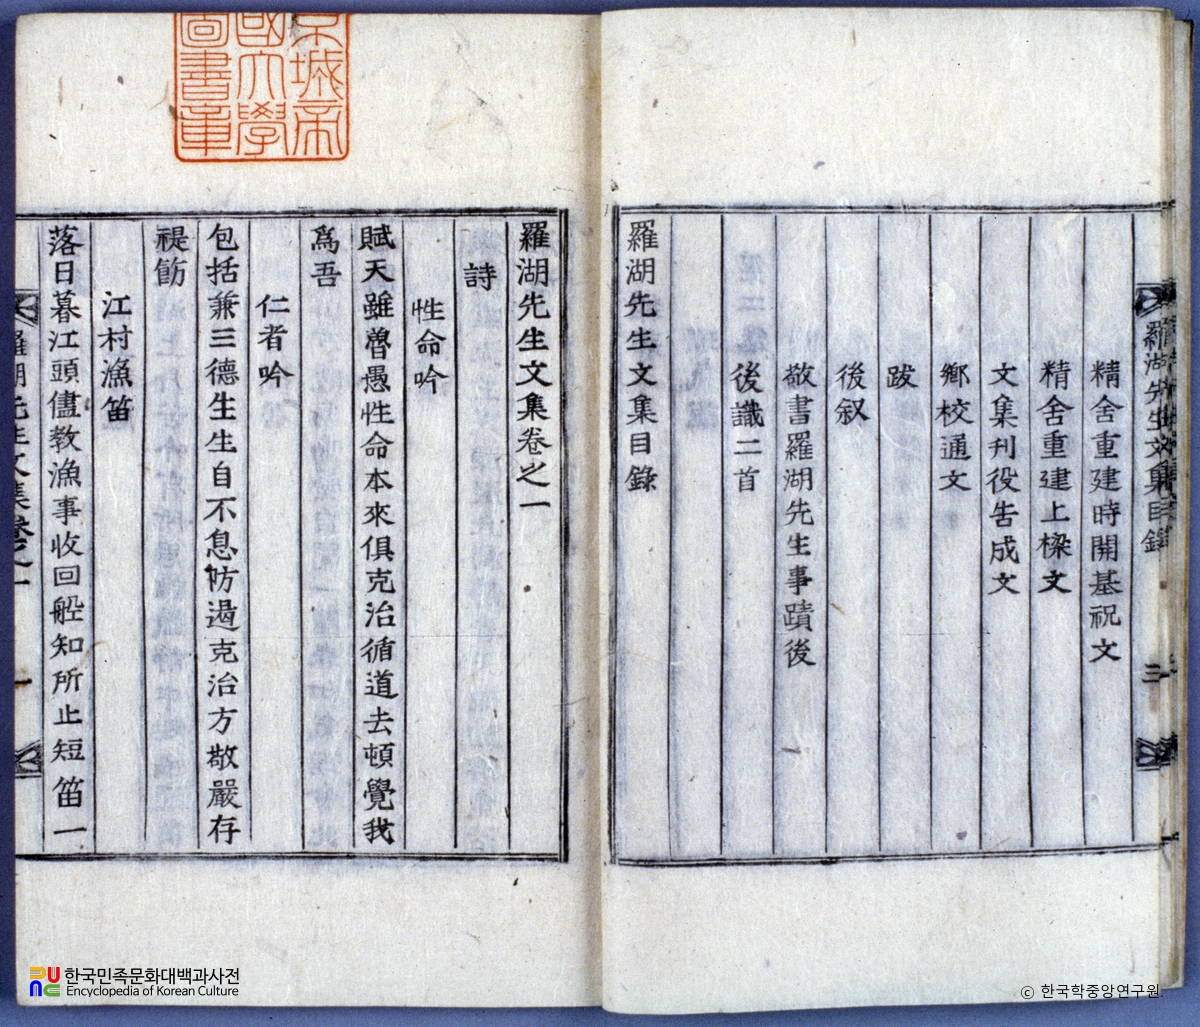 精舍重建時開基祝文
精舍重建上樑文
文集刊役告成文
鄉校通文
跋
後叙
敬書羅湖先生事蹟後
後識二首
羅湖先生文集目錄
羅湖先生文集目錄
三
京城帝
國大學
圖書章
羅湖先生文集卷之一
詩
性命吟
賦天雖魯愚性命本來俱克治循道去頓覺我
爲吾
仁者吟
包括兼三德生生自不息防過克治方敬嚴存
禔飭
江村漁笛
落日暮江頭儘教漁事收回舩知所止短笛一
羅湖先生文集卷之一
一
한국민족문화대백과사전
Encyclopedia of Korean Culture
ⓒ 한국학중앙연구원